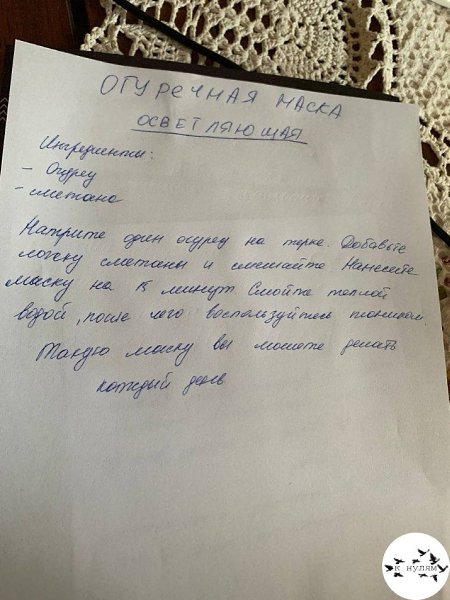 ОГУРЕЧНАЯ МАСКА
ОСВЕТЛЯЮЩАЯ
Ингредиенты:
- Огурец
- сметана
Натрите один огурец на терке. Добавьте
ложку сметаны и смешайте Нанесите
маску на 15 минут Смойте теплой
водой, после чего воспользуйтесь тоником.
Такую маску вы можете делать
каждый день
К НУЛЯМ